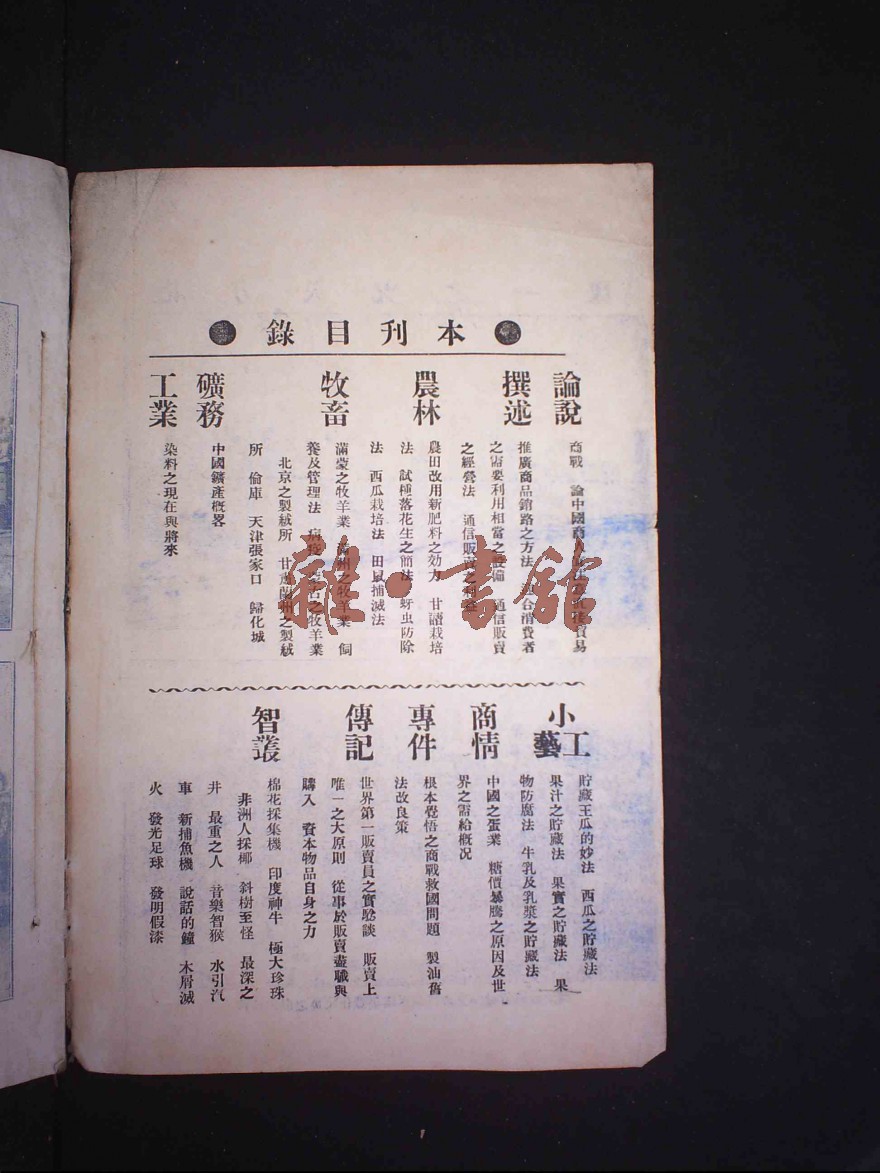 本刊目錄
論說
商戰　論中國商人
貿易
撰述
推廣商品銷路之方法　合消費者
之需要利用相當之設備　通信販賣
之經營法　通信販賣之利益
農林
農田改用新肥料之効力　甘藷栽培
法　試種落花生之簡法　蚜虫防除
法　西瓜栽培法　田鼠捕滅法
牧畜
滿蒙之牧羊業　滿州之牧羊業　飼
養及管理法　病疫　蒙古之牧羊業
北京之製絨所　甘肅蘭州之製絨
所　倫庫　天津張家口　歸化城
礦務
中國鑛產概畧
工業
染料之現在與將來
小工藝
貯藏王瓜的妙法　西瓜之貯藏法
果汁之貯藏法　果實之貯藏法　果
物防腐法　牛乳及乳漿之貯藏法
商情
中國之蛋業　糖價暴騰之原因及世
界之需給概况
專件
根本覺悟之商戰救國問題　製油舊
法改良策
傳記
世界第一販賣員之實驗談　販賣上
唯一之大原則　從事於販賣盡職與
購入　資本物品自身之力
智叢
棉花採集機　印度神牛　極大珍珠
非洲人採椰　斜樹至怪　最深之
井　最重之人　音樂智猴　水引汽
車　新捕魚機　說話的鐘　木屑滅
火　發光足球　發明假漆
雜·書舘